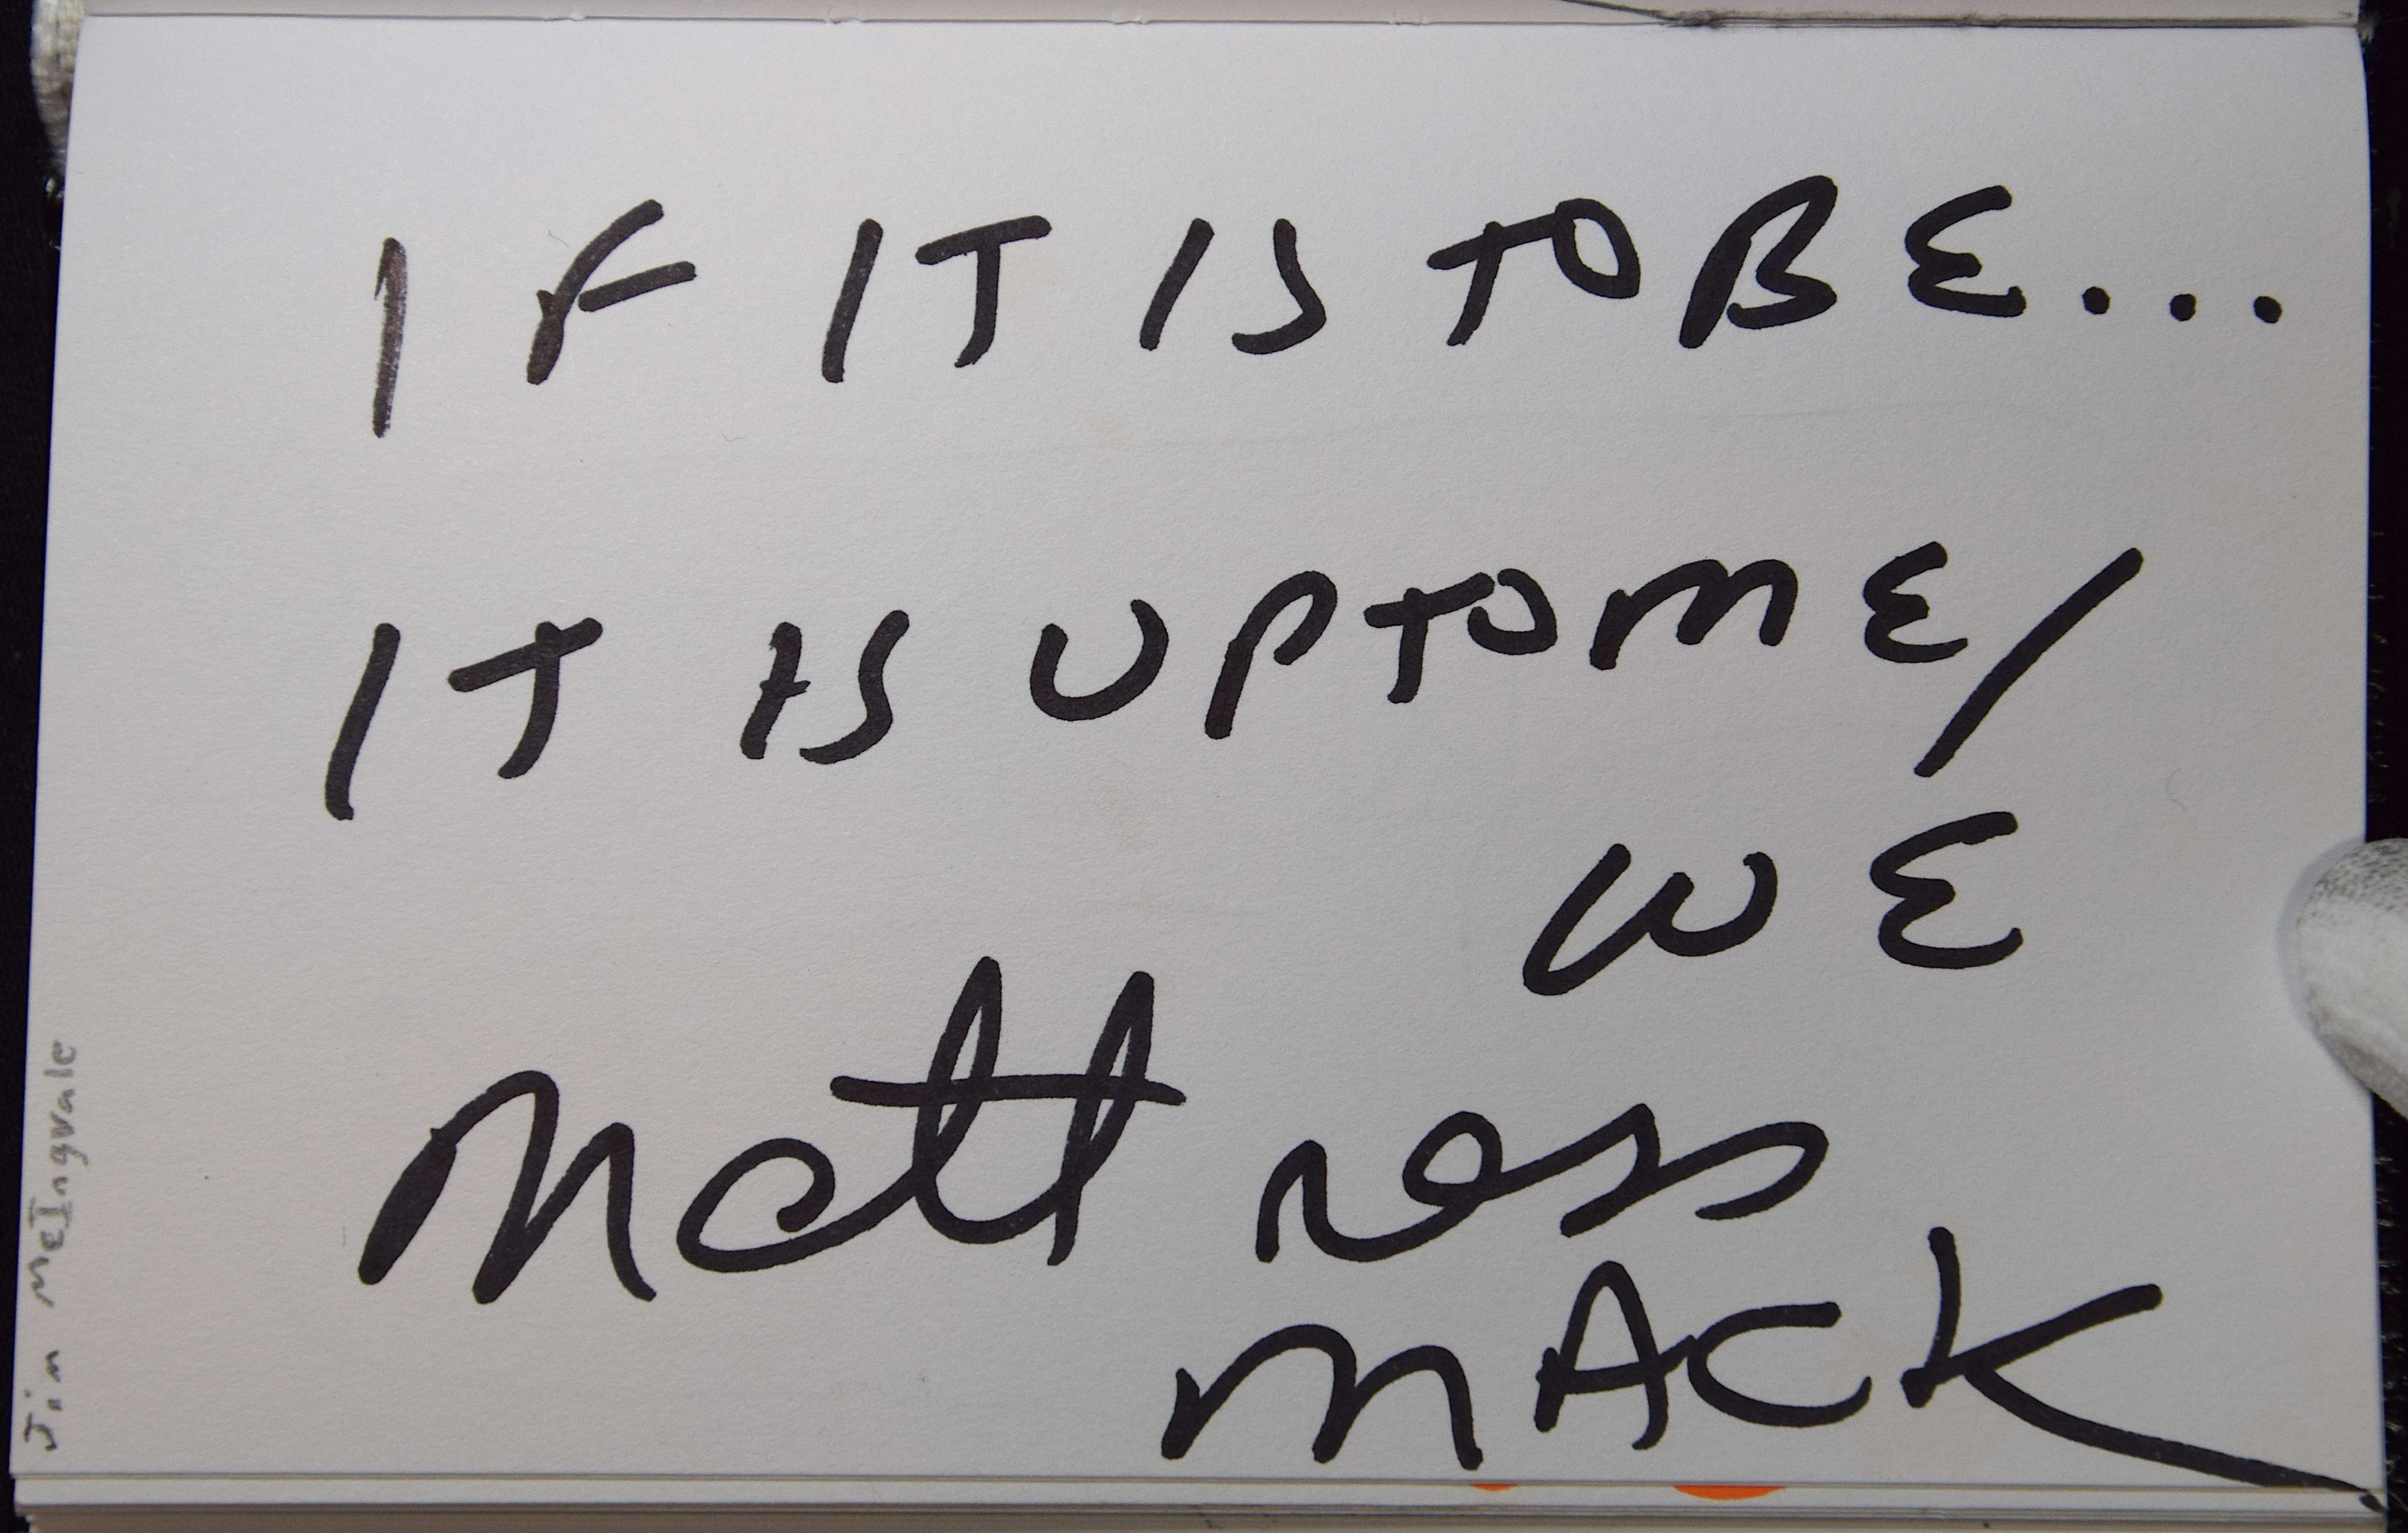 IF IT IS TO BE...
IT IS UP TO ME/
WE
Mattress
MACK
Jim McIngvale